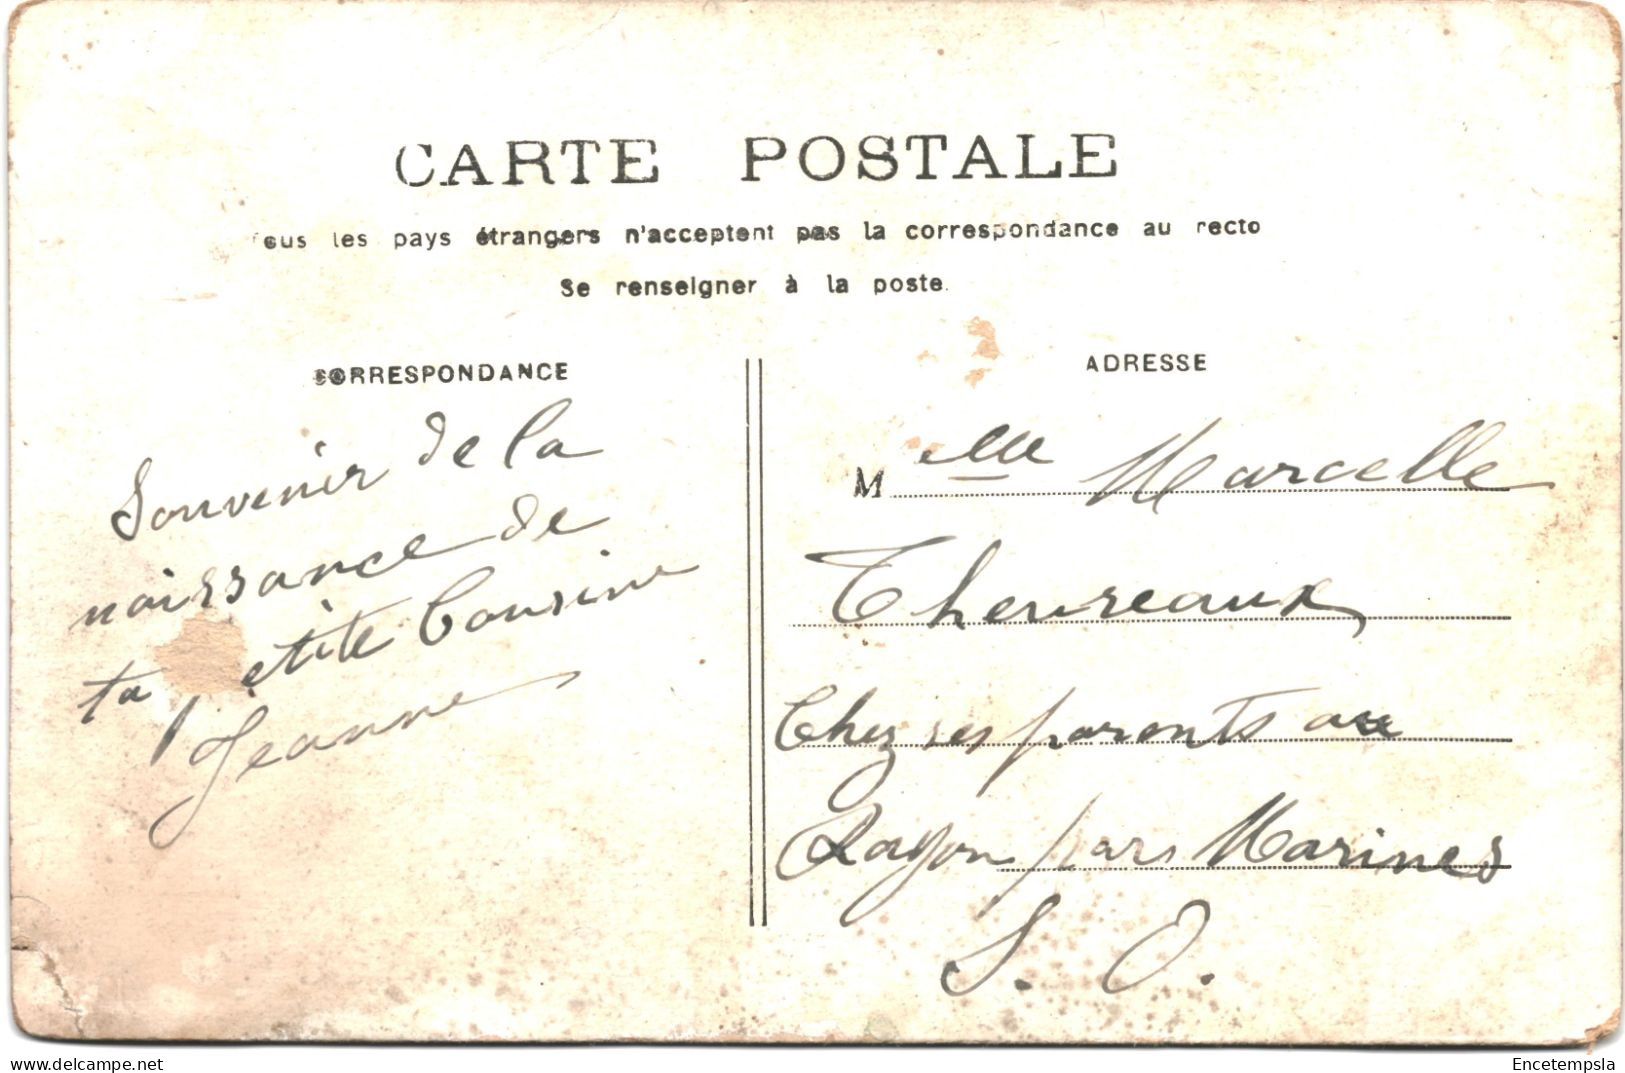 CARTE POSTALE
Tous les pays étrangers n'acceptent pas la correspondance au recto
Se renseigner à la poste.
CORRESPONDANCE
Souvenir de la
naissance de
ta petite Cousine
Jeanne
ADRESSE
Melle Marcelle
Thevreaux
Chez ses parents au
par Marines
S. O.
Encetempsla